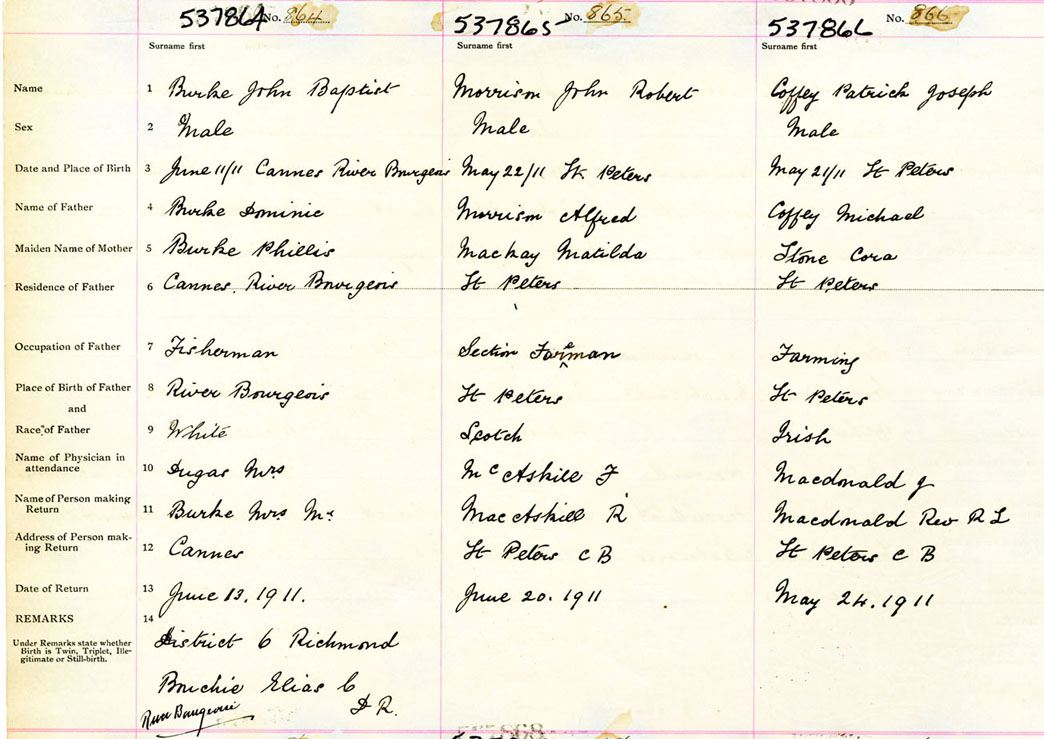 537864 No. 864 537865 No. 865 537866 No. 866
Surname first Surname first Surname first
Name 1 Burke John Baptist Morrison John Robert Coffey Patrick Joseph
Sex 2 Male Male Male
Date and Place of Birth 3 June 11/11 Cannes River Bourgeois May 22/11 St Peters May 21/11 St Peters
Name of Father 4 Burke Dominic Morrison Alfred Coffey Michael
Maiden Name of Mother 5 Burke Phillis Mackay Matilda Stone Cora
Residence of Father 6 Cannes, River Bourgeois St Peters St Peters
Occupation of Father 7 Fisherman Section Foreman Farming
Place of Birth of Father 8 River Bourgeois St Peters St Peters
and
Race of Father 9 White Scotch Irish
Name of Physician in
attendance 10 Dugas Mrs McAskill F Macdonald J
Name of Person making
Return 11 Burke Mrs MacAskill R Macdonald Rev R L
Address of Person mak-
ing Return 12 Cannes St Peters C B St Peters C B
Date of Return 13 June 13. 1911. June 20. 1911 May 24. 1911
REMARKS 14
Under Remarks state whether
Birth is Twin, Triplet, Ille-
gitimate or Still-birth.
District 6 Richmond
Bouchie Elias C
D R.